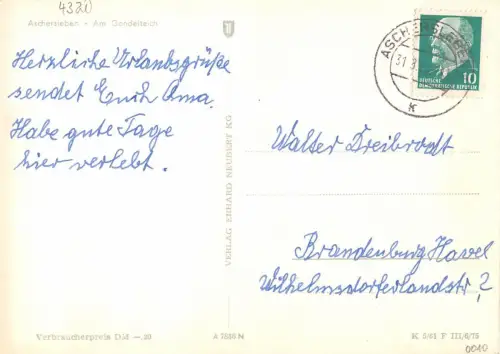 4320
Aschersleben - Am Gondelteich
Herzliche Urlaubsgrüße
sendet Euch Oma.
Habe gute Tage
hier verlebt.
VERLAG ERHARD NEUBERT KG
ASCHERSLEBEN
31.8.
K
10
DEUTSCHE
DEMOKRATISCHE REPUBLIK
Walter Dreibrodt
Brandenburg Havel
Wilhelmsdorferlandstr.
Verbraucherpreis DM —.20
A 7880 N
K 5/61 F III/6/75
0010